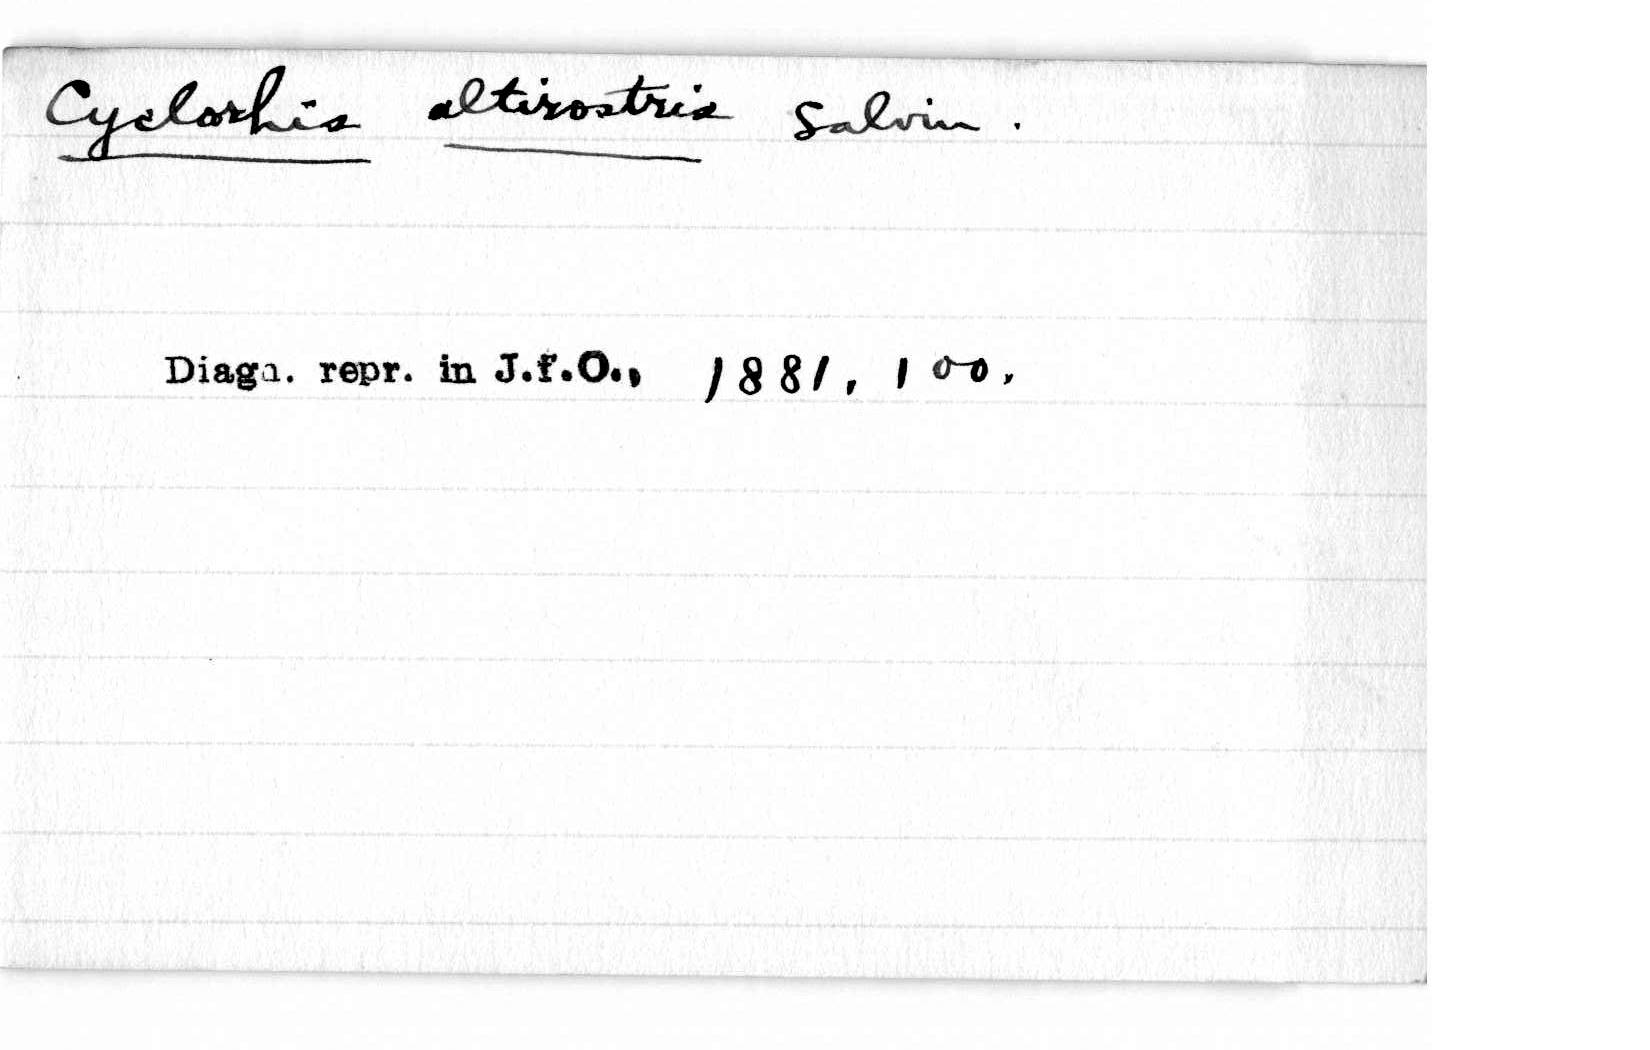 Cyclorhis altirostris Salvin.
Diagn. repr. in J.f.O., 1881, 100.